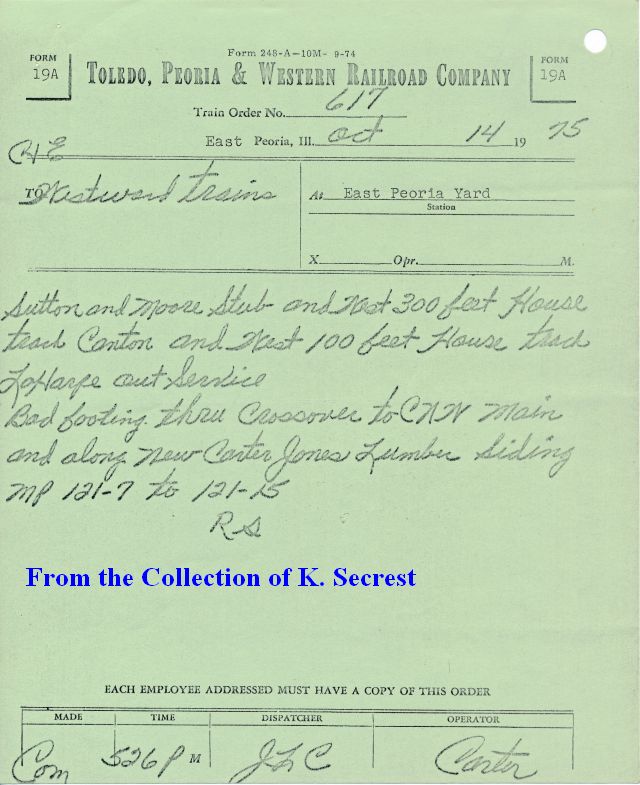 Form 248-A-10M- 9-74
FORM
19A
TOLEDO, PEORIA & WESTERN RAILROAD COMPANY
FORM
19A
Train Order No. 617
East Peoria, Ill. Oct 14 19 75
C&E
TO Westward trains
At East Peoria Yard
Station
X Opr. M.
Sutton and Moore Stub and West 300 feet House
track Canton and West 100 feet House track
LaHarpe out Service
Bad footing thru Crossover to CNW Main
and along New Carter Jones Lumber Siding
MP 121-7 to 121-15
RS
From the Collection of K. Secrest
EACH EMPLOYEE ADDRESSED MUST HAVE A COPY OF THIS ORDER
MADE TIME DISPATCHER OPERATOR
Com 526 P M JLC Carter